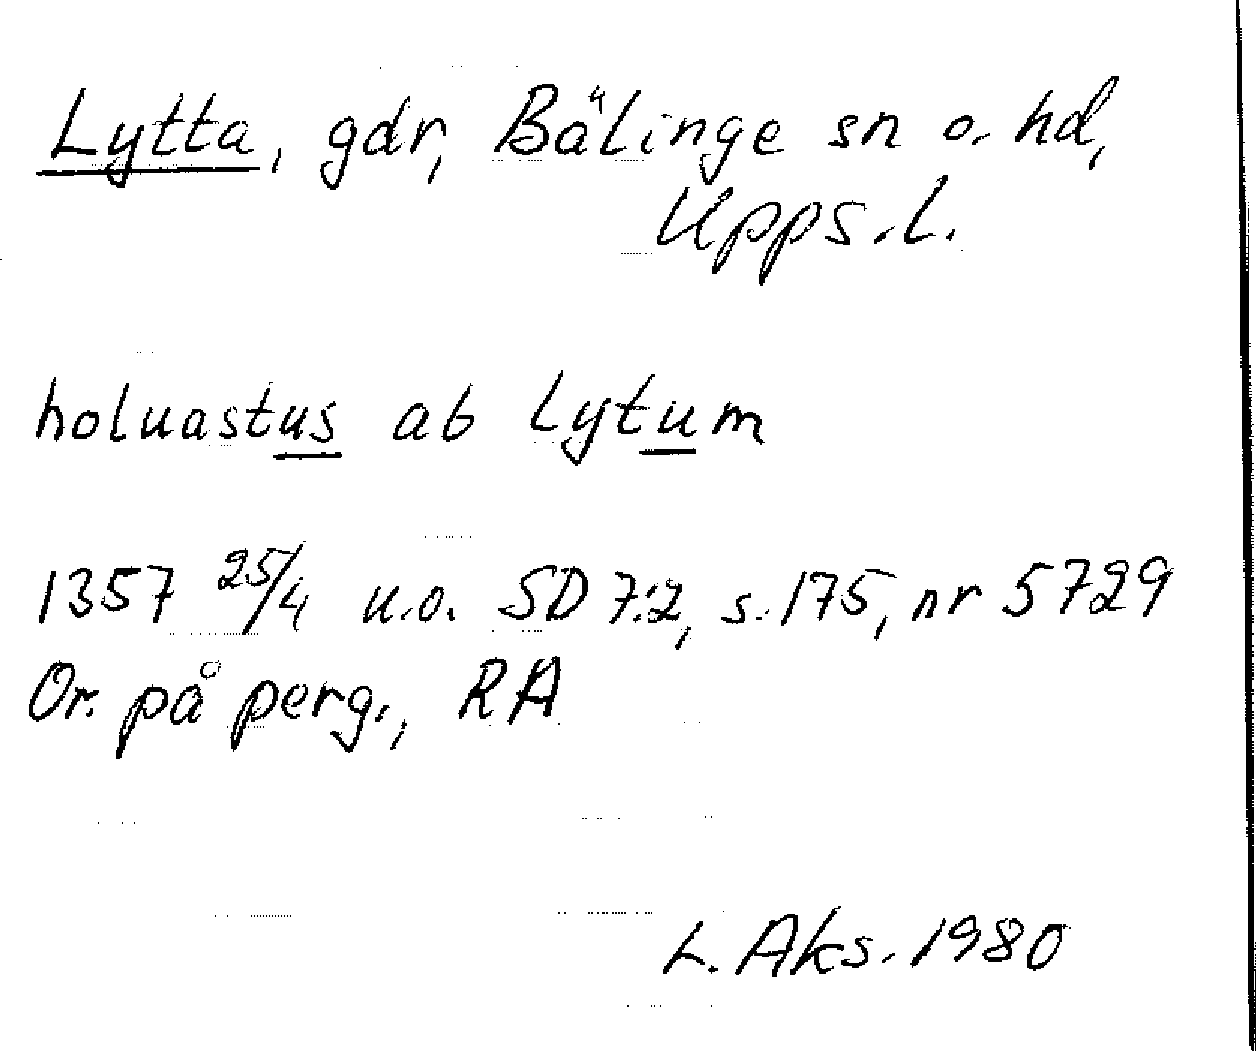 Lytta, gdr, Bälinge sn o. hd,
Upps. l.
holuastus ab Lytum
1357 25/4 u.o. SD 7:2, s. 175, nr 5729
Or. på perg., RA
L. Aks. 1980